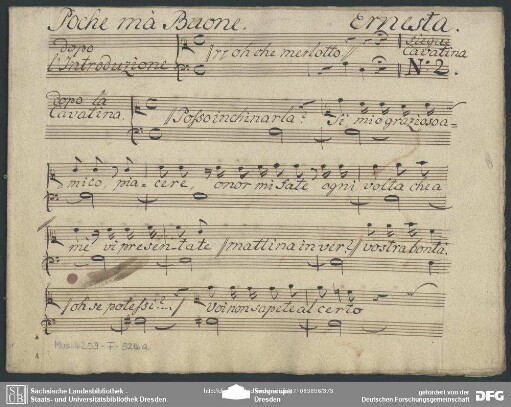 Poche mà Buone. Ernesta.
Dopo l'Introduzione // oh che merlotto // Siegue Cavatina No. 2.
Dopo la Cavatina. // Posso inchinarla? Si mio grazioso a=
mico, piacere, onor mi fate ogni volta che a
me vi presentate // mattina in ver? // vostra bontà.
// oh se potessi? // Voi non sapete al certo
Mus. 4259-F-524a
Sächsische Landesbibliothek
Staats- und Universitätsbibliothek Dresden
Dresden
gefördert von der
Deutschen Forschungsgemeinschaft
DFG